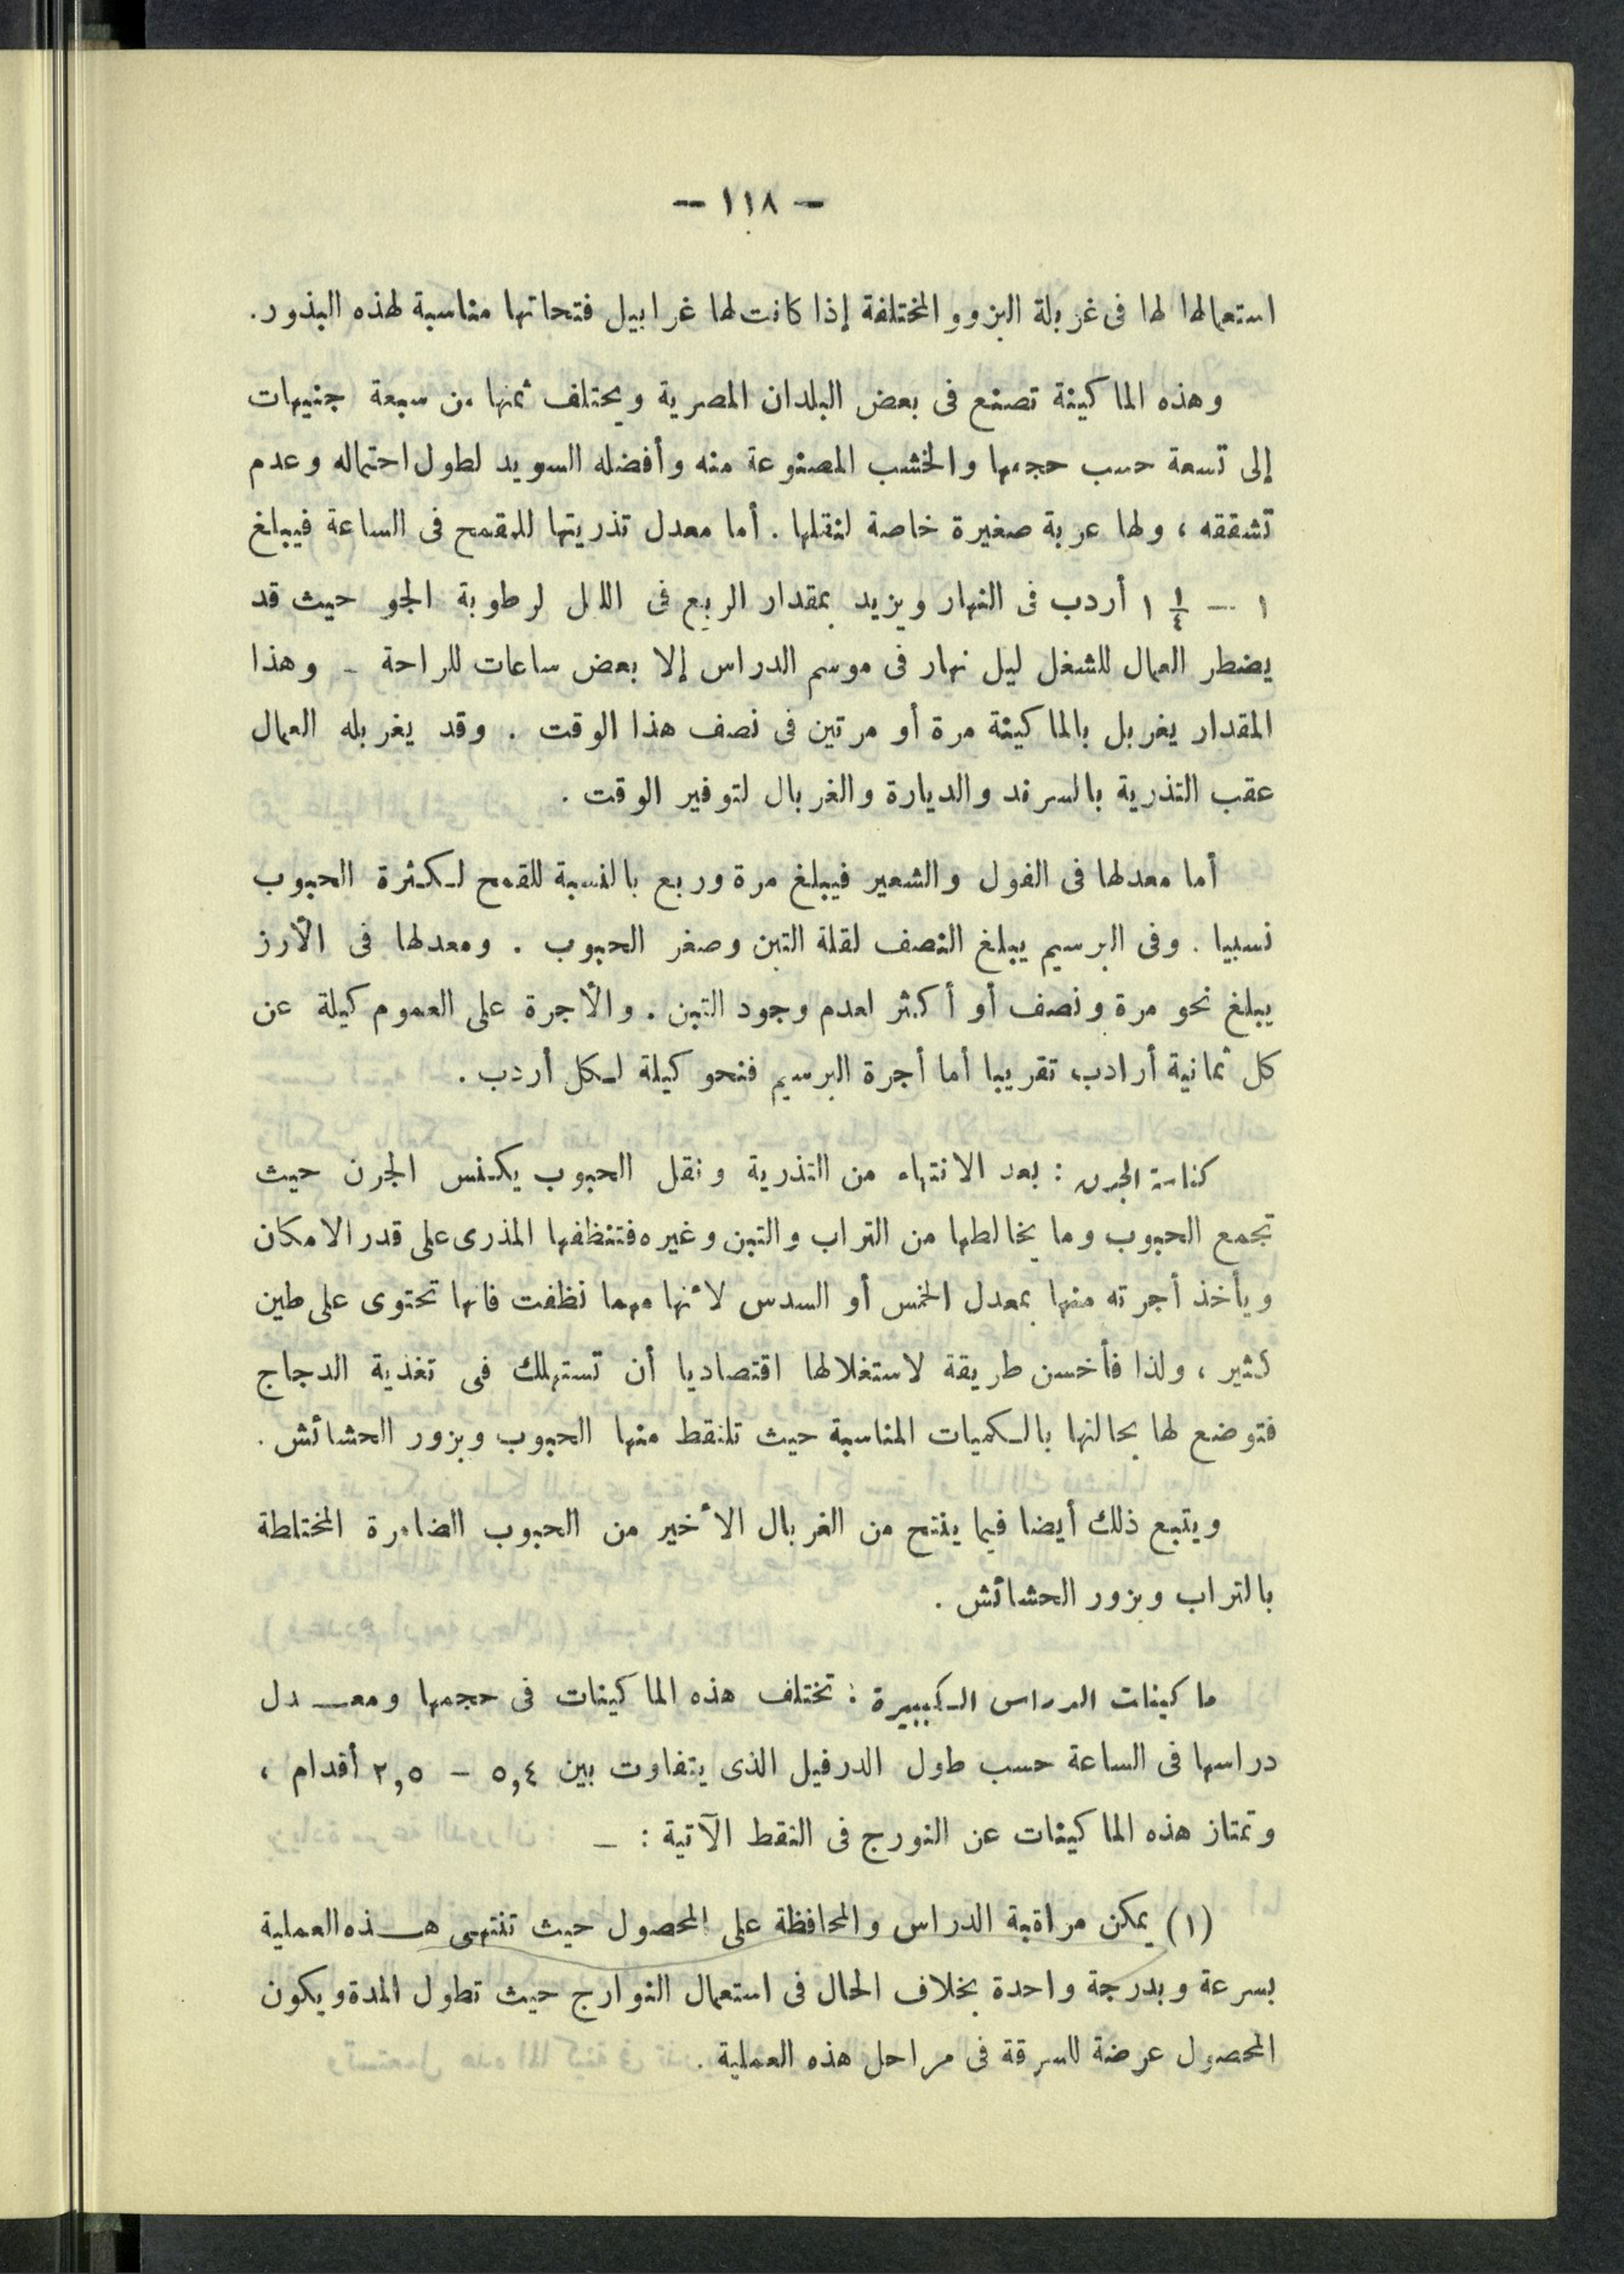 — ١١٨ —
استعمالها لها فى غربلة البزوو المختلفة إذا كانت لها غرابيل فتحاتها مناسبة لهذه البذور.
وهذه الماكينة تصنع فى بعض البلدان المصرية ويختلف ثمنها من سبعة جنيهات
إلى تسعة حسب حجمها والخشب المصنوعة منه وأفضله السويد لطول احتماله وعدم
تشققه ، ولها عربة صغيرة خاصة لنقلها . أما معدل تذريتها للمقمح فى الساعة فيبلغ
١ — ١ ١/٤ أردب فى النهار ويزيد بمقدار الربع فى اللل لرطوبة الجو حيث قد
يضطر العمال للشغل ليل نهار فى موسم الدراس إلا بعض ساعات للراحة - وهذا
المقدار يغربل بالماكينة مرة أو مرتين فى نصف هذا الوقت . وقد يغربله العمال
عقب التذرية بالسرند والديارة والغربال لتوفير الوقت .
أما معدلها فى الفول والشعير فيبلغ مرة وربع بالنسبة للقمح لكثرة الحبوب
نسبيا . وفى البرسيم يبلغ النصف لقلة التبن وصغر الحبوب . ومعدلها فى الأرز
يبلغ نحو مرة ونصف أو أكثر لعدم وجود التبن . والأجرة على العموم كيلة عن
كل ثمانية أرادب تقريبا أما أجرة البرسيم فنحو كيلة لكل أردب .
كناسة الجرن : بعد الانتهاء من التذرية ونقل الحبوب يكنس الجرن حيث
تجمع الحبوب وما يخالطها من التراب والتبن وغيره فتنظفها المذرى على قدر الامكان
ويأخذ أجرته منها بمعدل الخمس أو السدس لأنها مهما نظفت فانها تحتوى على طين
كثير ، ولذا فأخسن طريقة لاستغلالها اقتصاديا أن تستهلك فى تغذية الدجاج
فتوضع لها بحالنها بالكميات المناسبة حيث تلنقط منها الحبوب وبزور الحشائش .
ويتبع ذلك أيضا فيما ينتح من الغربال الأخير من الحبوب الضامرة المختلطة
بالتراب وبزور الحشائش .
ماكينات الدراس الكبييرة : تختلف هذه الماكينات فى حجمها ومعــدل
دراسها فى الساعة حسب طول الدرفيل الذى يتفاوت بين ٥,٤ - ٢,٥ أقدام ،
وتمتاز هذه الماكينات عن النورج فى النقط الآتية : —
(١) يمكن مراقبة الدراس والمحافظة على المحصول حيث تنتهى هــذه العملية
بسرعة وبدرجة واحدة بخلاف الحال فى استعمال النوارج حيث تطول المدة ويكون
المحصول عرضة للسرقة فى مراحل هذه العملية .